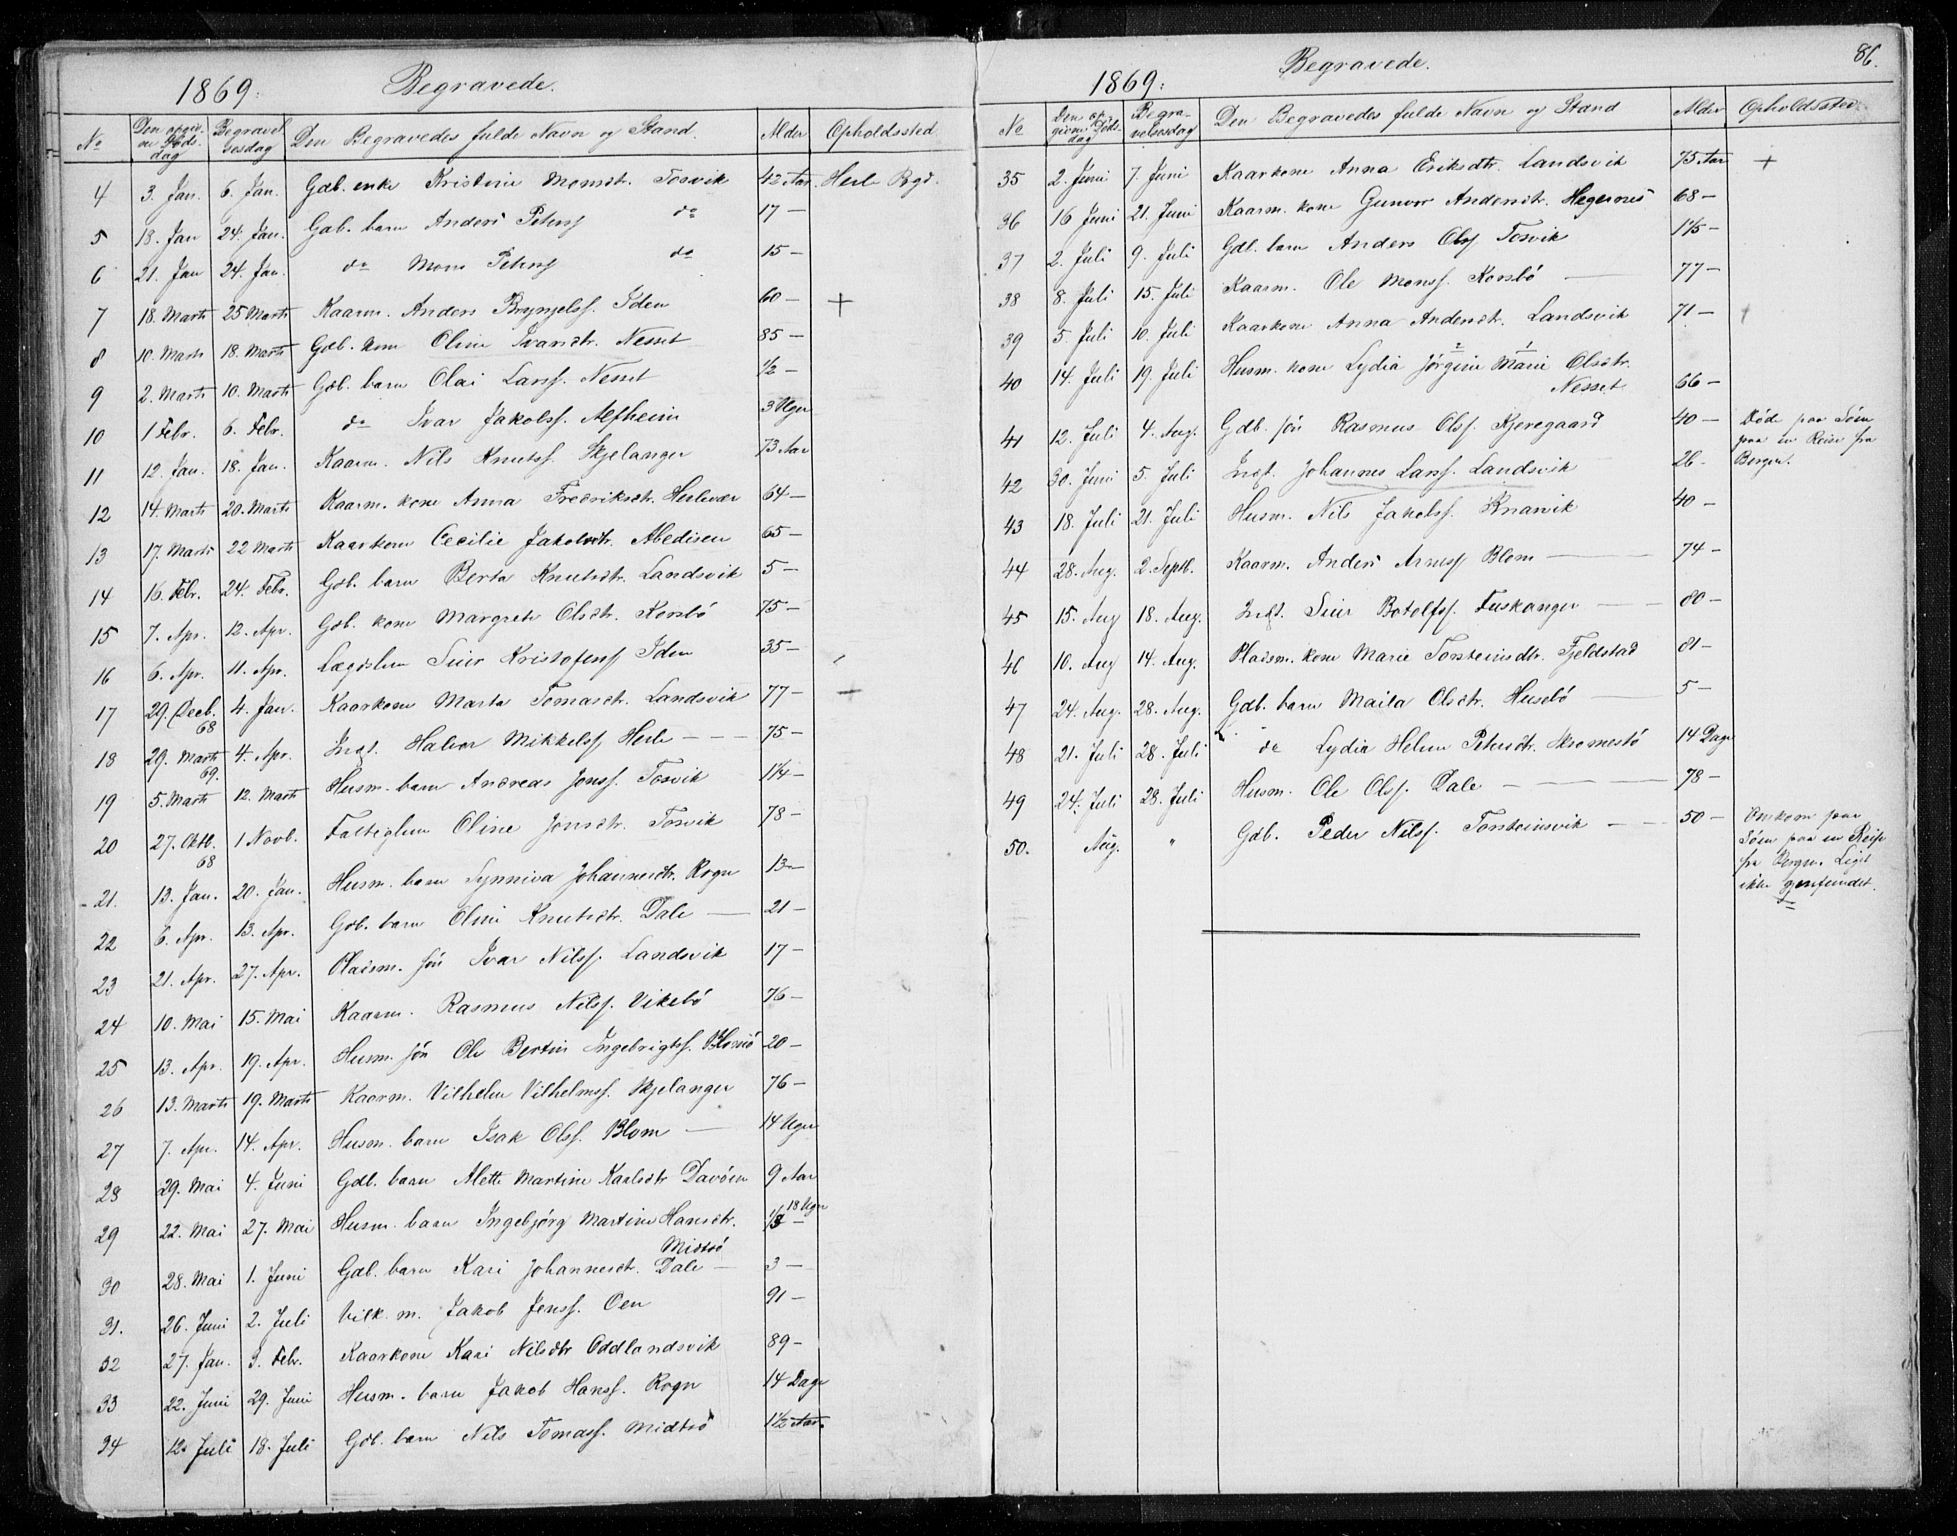 1869. Begravede.
No Den opgivne Dødsdag Begravelsesdag Den Begravedes fulde Navn og Stand. Alder Opholdssted
4 3. Jan. 6. Jan. Gdb. enke Kristine Monsdtr. Tosvik 42 Aar Herle Bgd.
5 18. Jan 24. Jan. Gdb. barn Anders Petersf do 17 —
6 21. Jan 24. Jan. do Mons Petersf do 15 —
7 18. Marts 25 Marts Kaarm. Anders Brynjelsf. Iden 60 — +
8 10. Marts 18. Marts Gdb. kone Oline Ivarsdtr. Nesset 85 —
9 2. Marts 10. Marts Gdb. barn Olai Larsf. Nesset 1/2 —
10 1 Febr. 6. Febr. do Ivar Jakobsf. Alfheim 3 Uger
11 12. Jan. 18. Jan. Kaarm. Nils Knutsf. Skjelanger 73 Aar
12 14. Marts 20. Marts Kaarm. kone Anna Fredriksdtr. Herlevær 64 —
13 17. Marts 22 Marts Kaarkone Cecilie Jakobsdtr. Abedisen 65 —
14 16. Febr. 24. Febr. Gdb. barn Berta Knutsdtr. Landsvik 5 —
15 7. Apr. 12. Apr. Gdb. kone Margrete Olsdtr. Korsbö 75 —
16 6. Apr. 11. Apr. Lægdslem Siur Kristofersf Iden 35 —
17 29. Decb. 68 4. Jan. Kaarkone Marta Tomasdtr. Landsvik 77 — —
18 29. Marts 69. 4. Apr. Indst. Halvor Mikkelsf Herle — — — 75 —
19 5. Marts 12. Marts Husm. barn Andreas Jonsf. Tosvik 1 1/4 —
20 27. Oktb. 68 1 Novb. Fattiglem Oline Jonsdtr. Tosvik 78 —
21. 13. Jan. 20. Jan. Husm. barn Synniva Johannesdtr. Rogn 13 —
22 6. Apr. 13. Apr. Gdb. barn Oline Knutsdtr. Dale — 21 —
23 21. Apr. 27. Apr. Pladsm. sön Ivar Nilsf. Landsvik 17 —
24 10. Mai 15. Mai Kaarm. Rasmus Nilsf. Vikebö 76 —
25 13. Apr. 19. Apr. Husm. sön Ole Bertin Ingebrigtsf. Blomö 20 —
26 13. Marts 19. Marts Kaarm. Vilhelm Vilhelmsf. Skjelanger 76 —
27 7. Apr. 14. Apr. Husm. barn Isak Olsf. Blom — 14 Uger
28 29. Mai 4. Juni Gdb. barn Mette Martine Karlsdtr Davöen 9 Aar
29 22. Mai 27. Mai Husm. barn Ingebjörg Martine Hansdtr. 18 Uger
Midtsö
30 28. Mai 1. Juni Gdb. barn Kari Johannesdtr. Dale — 3 —
31. 26. Juni 2. Juli Vilk. m. Jakob Jensf. Oen 91 —
32 27. Jan. 3. Febr. Kaarkone Kari Nilsdtr Oddlandsvik 89 —
33 22. Juni 29. Juni Husm. barn Jakob Hansf. Rogn 14 Dage
34 12. Juli 18. Juli Gdb. barn Nils Tomasf. Midtsö 1 1/2 Aar.
1869. Begravede. 86.
No Den opgivne Dödsdag Begravelsesdag Den Begravedes fulde Navn og Stand Alder Opholdssted
35 2. Juni 7. Juni Kaarkone Anna Eriksdtr. Landsvik 75 Aar +
36 16 Juni 21. Juni Kaarm. kone Gunvor Andersdtr. Hegernes 68 —
37 2. Juli 9. Juli Gdb. barn Anders Olsf Tosvik
38 8. Juli 15. Juli Kaarm. Ole Monsf. Korsbö — 77 —
39 5. Juli 10. Juli Kaarkone Anna Andersdtr. Landsvik 71 —
40 14. Juli 19. Juli Husm. kone Lydia Jörgine Marie Olsdtr.
Nesset 66 —
41 12. Juli 4. Aug. Gdb. sön Rasmus Olsf. Kjeregaard 40 — Död paa Söen
paa en Reise fra
Bergen.
42 30. Juni 5. Juli Indst. Johannes Larsf. Landsvik 26 —
43 18. Juli 21. Juli Husm. Nils Jakobsf. Knarvik 40 —
44 28. Aug. 2. Septb. Kaarm. Anders Arnesf Blom — 74 —
45 15. Aug 18. Aug. Indst. Siur Botolfsf. Fuskanger — 80 —
46 10. Aug 14. Aug. Pladsm. kone Marie Torsteinsdtr. Fjeldstad 81 —
47 24. Aug. 28. Aug. Gdb. barn Maila Olsdtr. Husebö — 5 —
48 21. Juli 28. Juli do Lydia Helene Petersdtr. Skromestö 14 Dage
49 24. Juli 28. Juli Husm. Ole Olsf. Dale — 78 —
50. Aug. " Gdb. Peder Nilsf. Torsteinsvik — 50 — Omkom paa
Söen paa en Reise
fra Bergen. Liget
ikke gjenfundet.